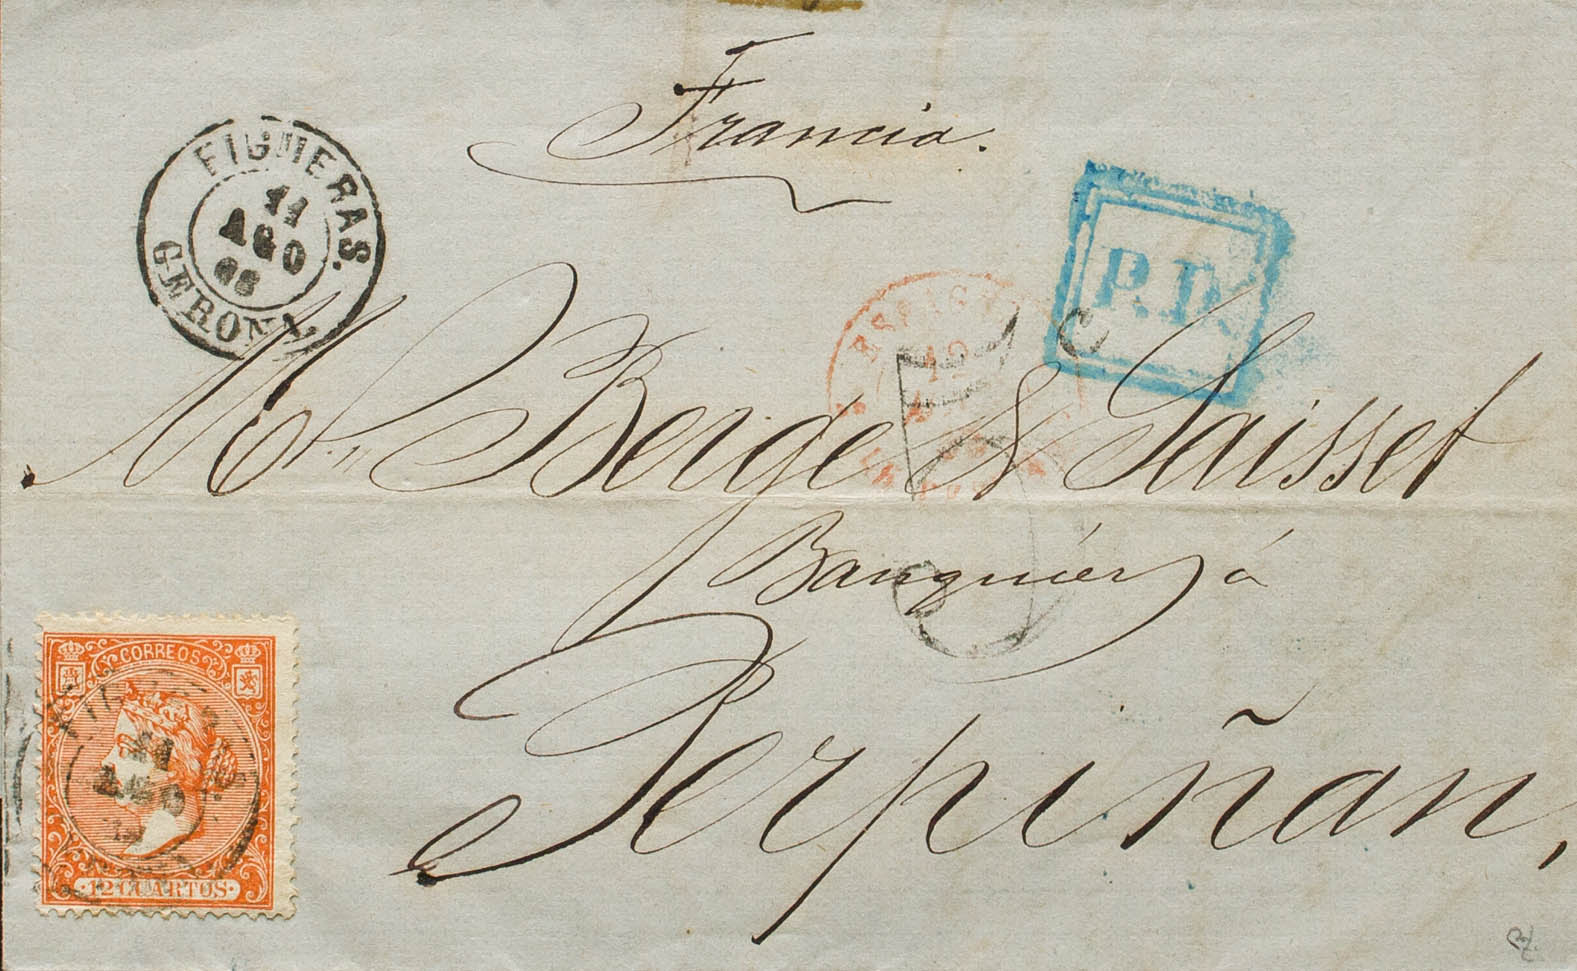 Francia.
FIGUERAS.
11
AGO
66
GERONA
P.D.
12
Mrs. Berge & Saisset
Banquiers á
Perpiñan,
CORREOS
11
AGO
12 CUARTOS